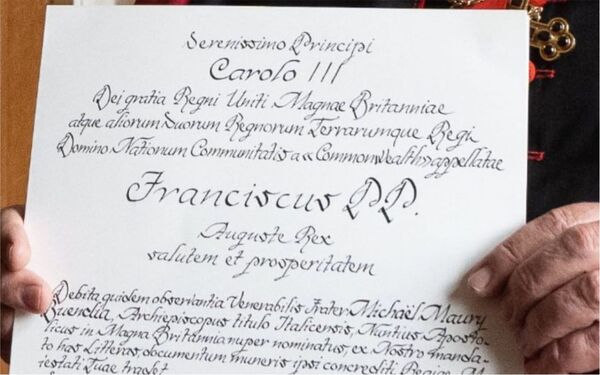 Serenissimo Principi
Carolo III
Dei gratia Regni Uniti Magnae Britanniae
atque aliorum suorum Regnorum Terrarumque Regi,
Domino Nationum Communitatis a «Commonwealth» appellatae
Franciscus PP.
Auguste Rex
salutem et prosperitatem
Debita quidem observantia Venerabilis Frater Michaël Maury
Buendía, Archiepiscopus titulo Italicensis, Nuntius Aposto-
licus in Magna Britannia nuper nominatus, ex Nostro manda-
to has Litteras, documentum muneris ipsi concrediti, Regiae M
iestati Tuae tradet